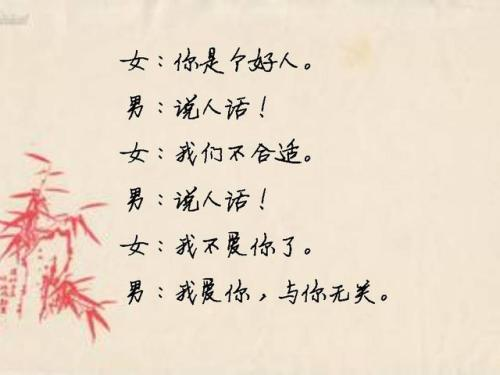 女：你是个好人。
男：说人话！
女：我们不合适。
男：说人话！
女：我不爱你了。
男：我爱你，与你无关。